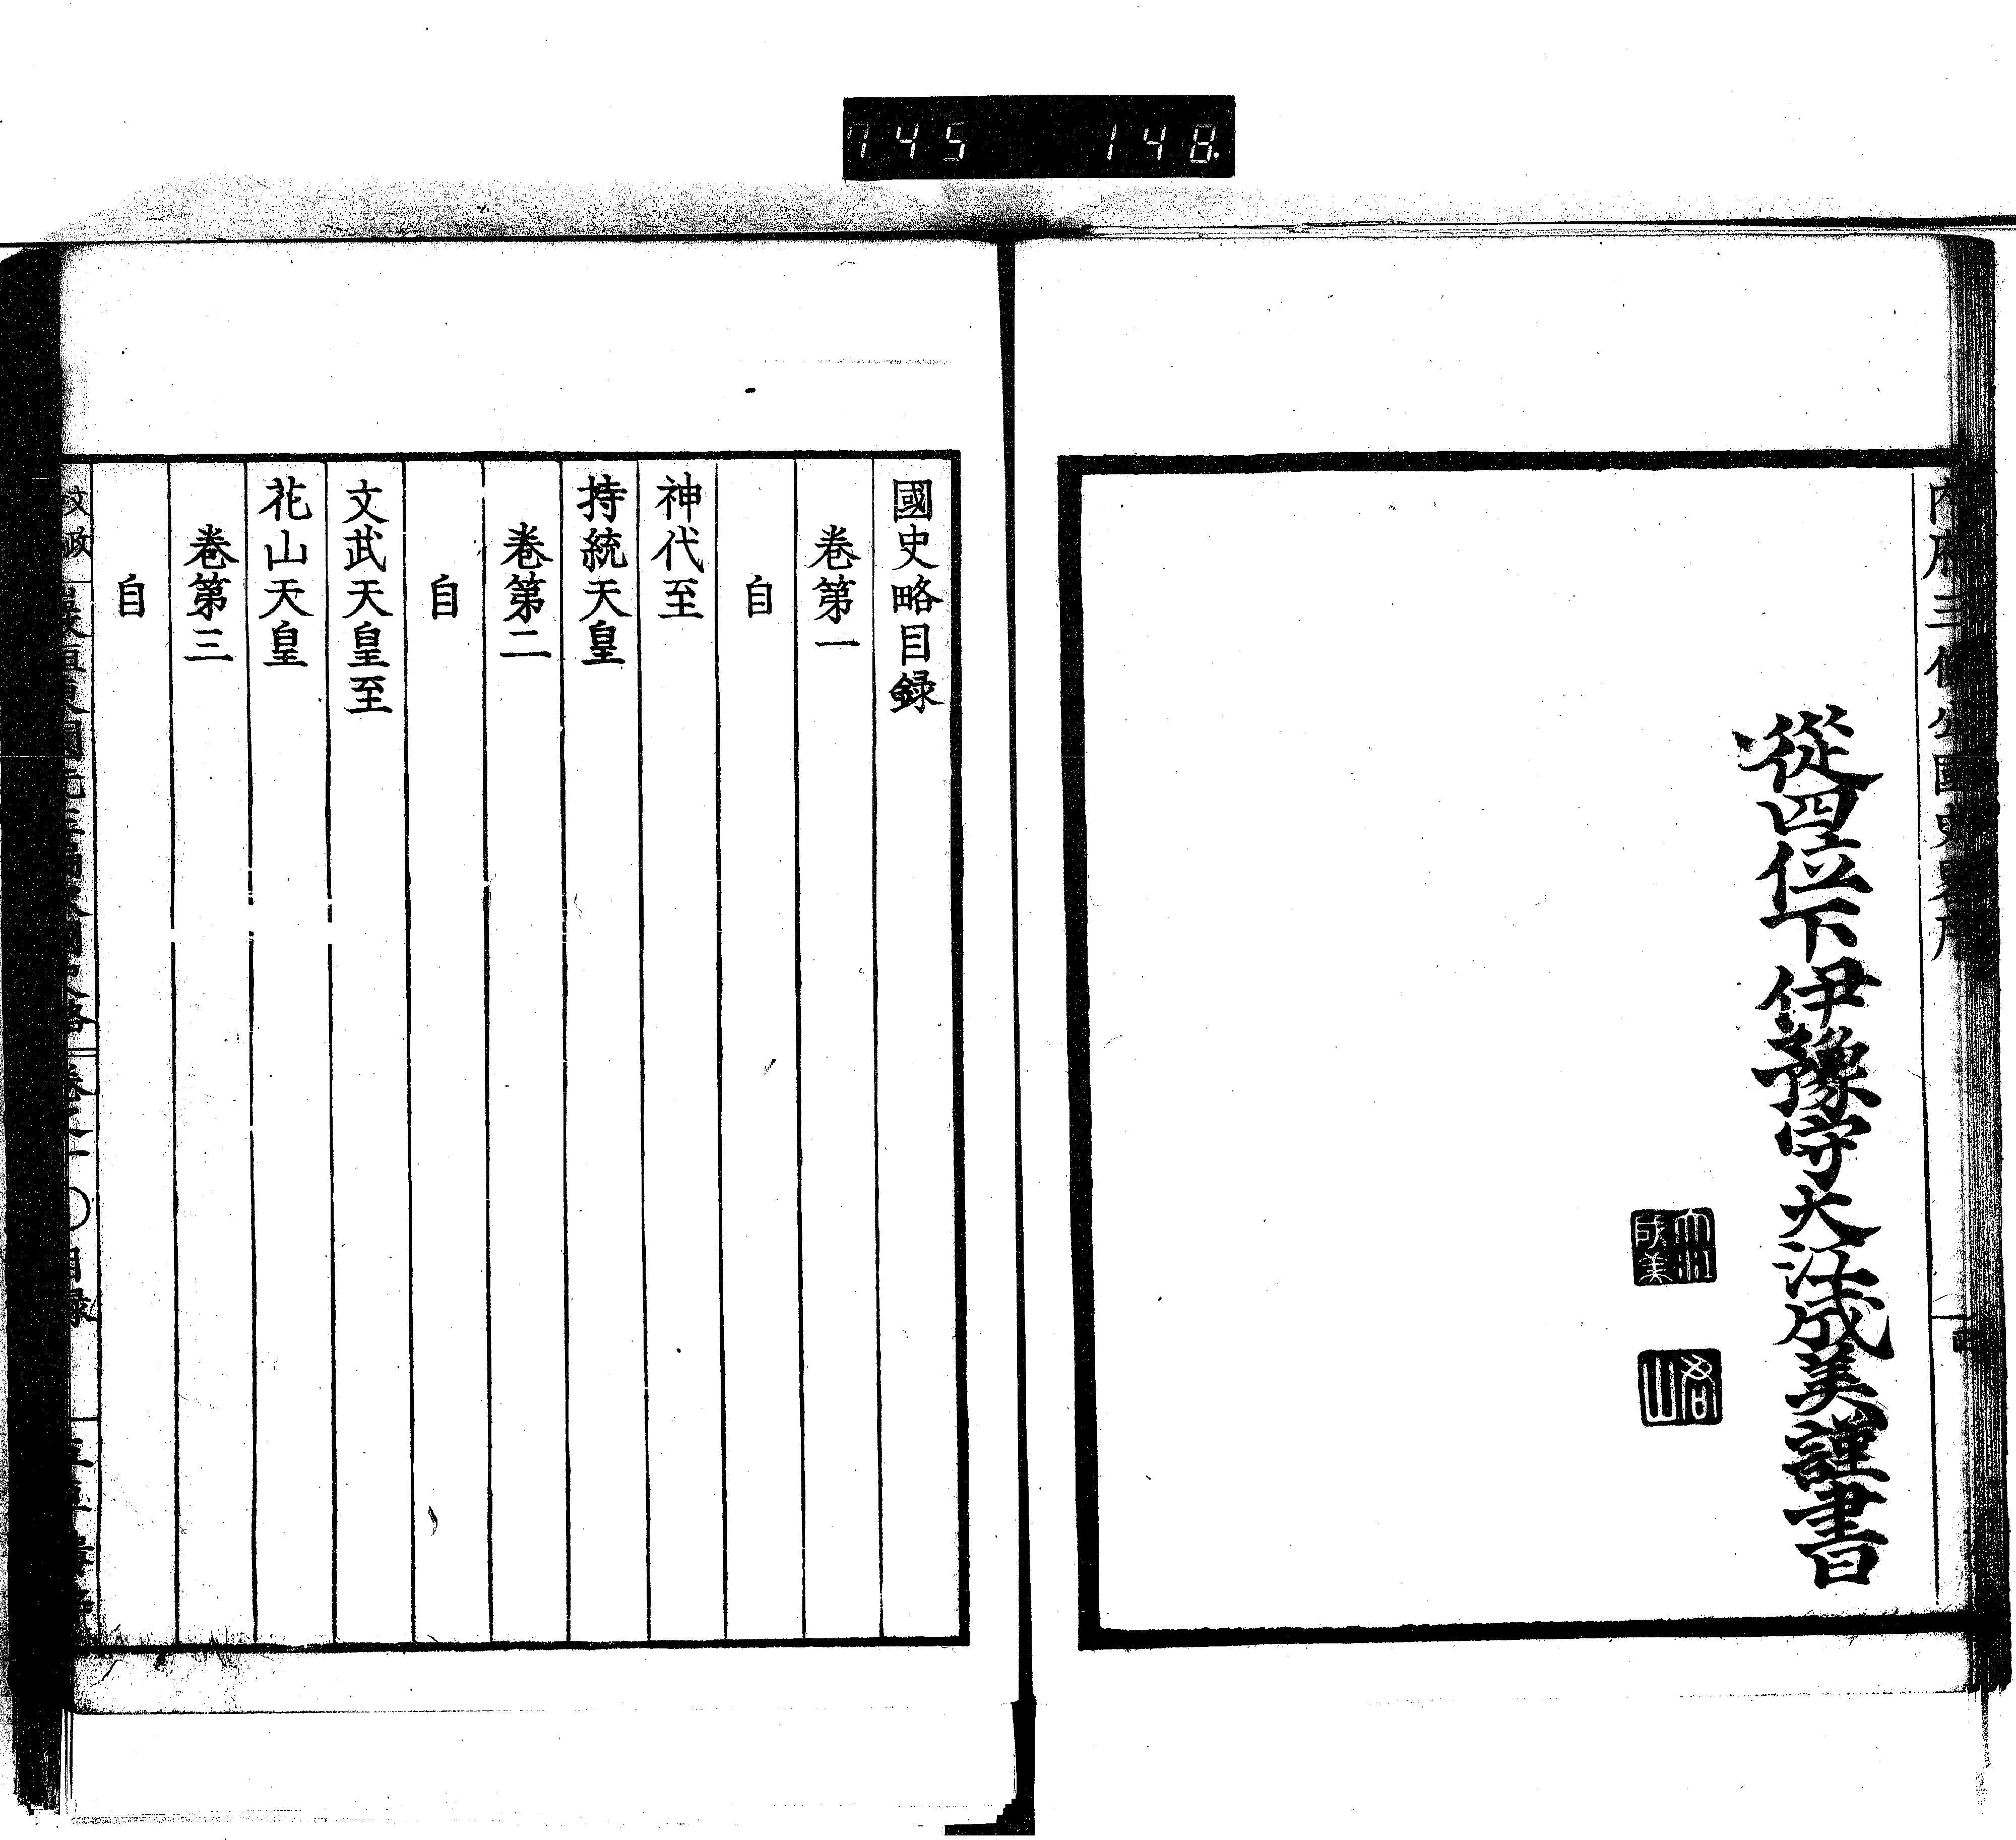 745 148.
從四位下伊豫守大江成美謹書
大江
成美
國史略目録
巻第一
自
神代至
持統天皇
巻第二
自
文武天皇至
花山天皇
巻第三
自